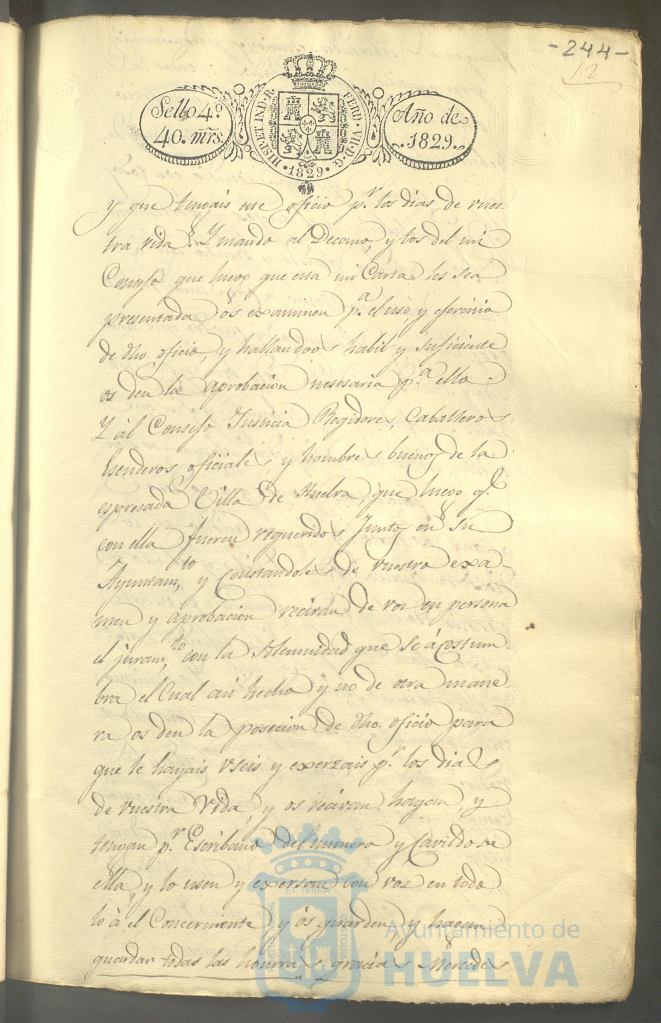 -244-
12
Sello 4º
40. mrs.
HISP. ET IND. R.
FERD. VII. D. G.
1829
Año de
1829.
y que tengais ese oficio p.r los dias de vues
tra vida. Y mando al Decano, y los del mi
Consejo que luego que esta mi Carta les sea
presentada os examinen p.a el uso, y ejercicio
de dho. oficio, y hallandoos habil y suficiente
os den la aprobacion nesesaria p.a ello.
Y al Consejo Justicia Regidores, Caballeros
Escuderos, oficiales y hombres buenos de la
espresada Villa de Huelva, que luego q.e
con ella fueren requeridos Juntos en su
Ayuntam.to y Constandoles de vuestro exa-
men y aprobacion reciran de vos en persona
el juram.to con la solemnidad que se acostum
bra el Cual asi hecho y no de otra mane
ra os den la posecion de dho. oficio para
que le hayais useis y exerzais p.r los dias
de vuestra Vida, y os recivan hayan, y
tengan p.r Escribano del numero y Cavildo de
ella, y lo usen y exersan con vos en todo
lo à el Concerniente y ós guarden y hagan
guardar todas las honrras gracias Mercedes
Ayuntamiento de
HUELVA